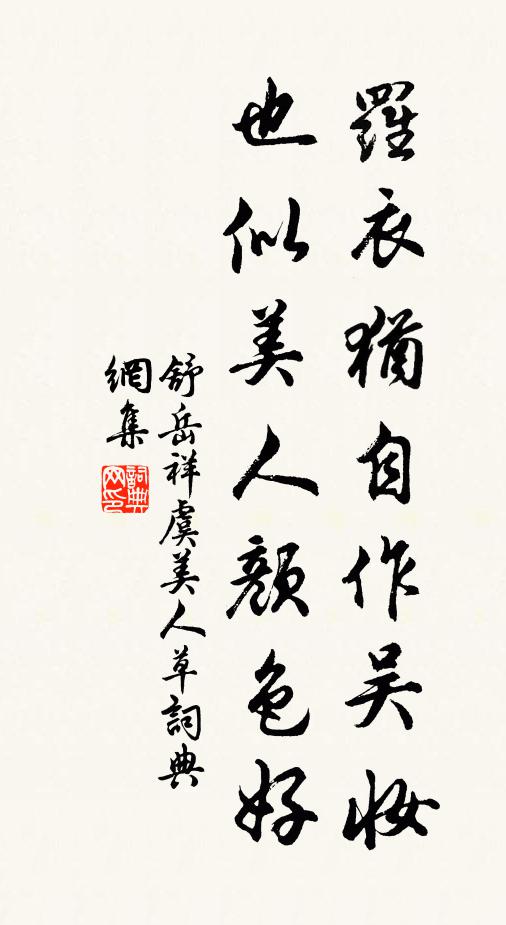 羅衣猶自作吴妝
也似美人顔色好
舒岳祥虞美人草詞典
網集
詞典
网印